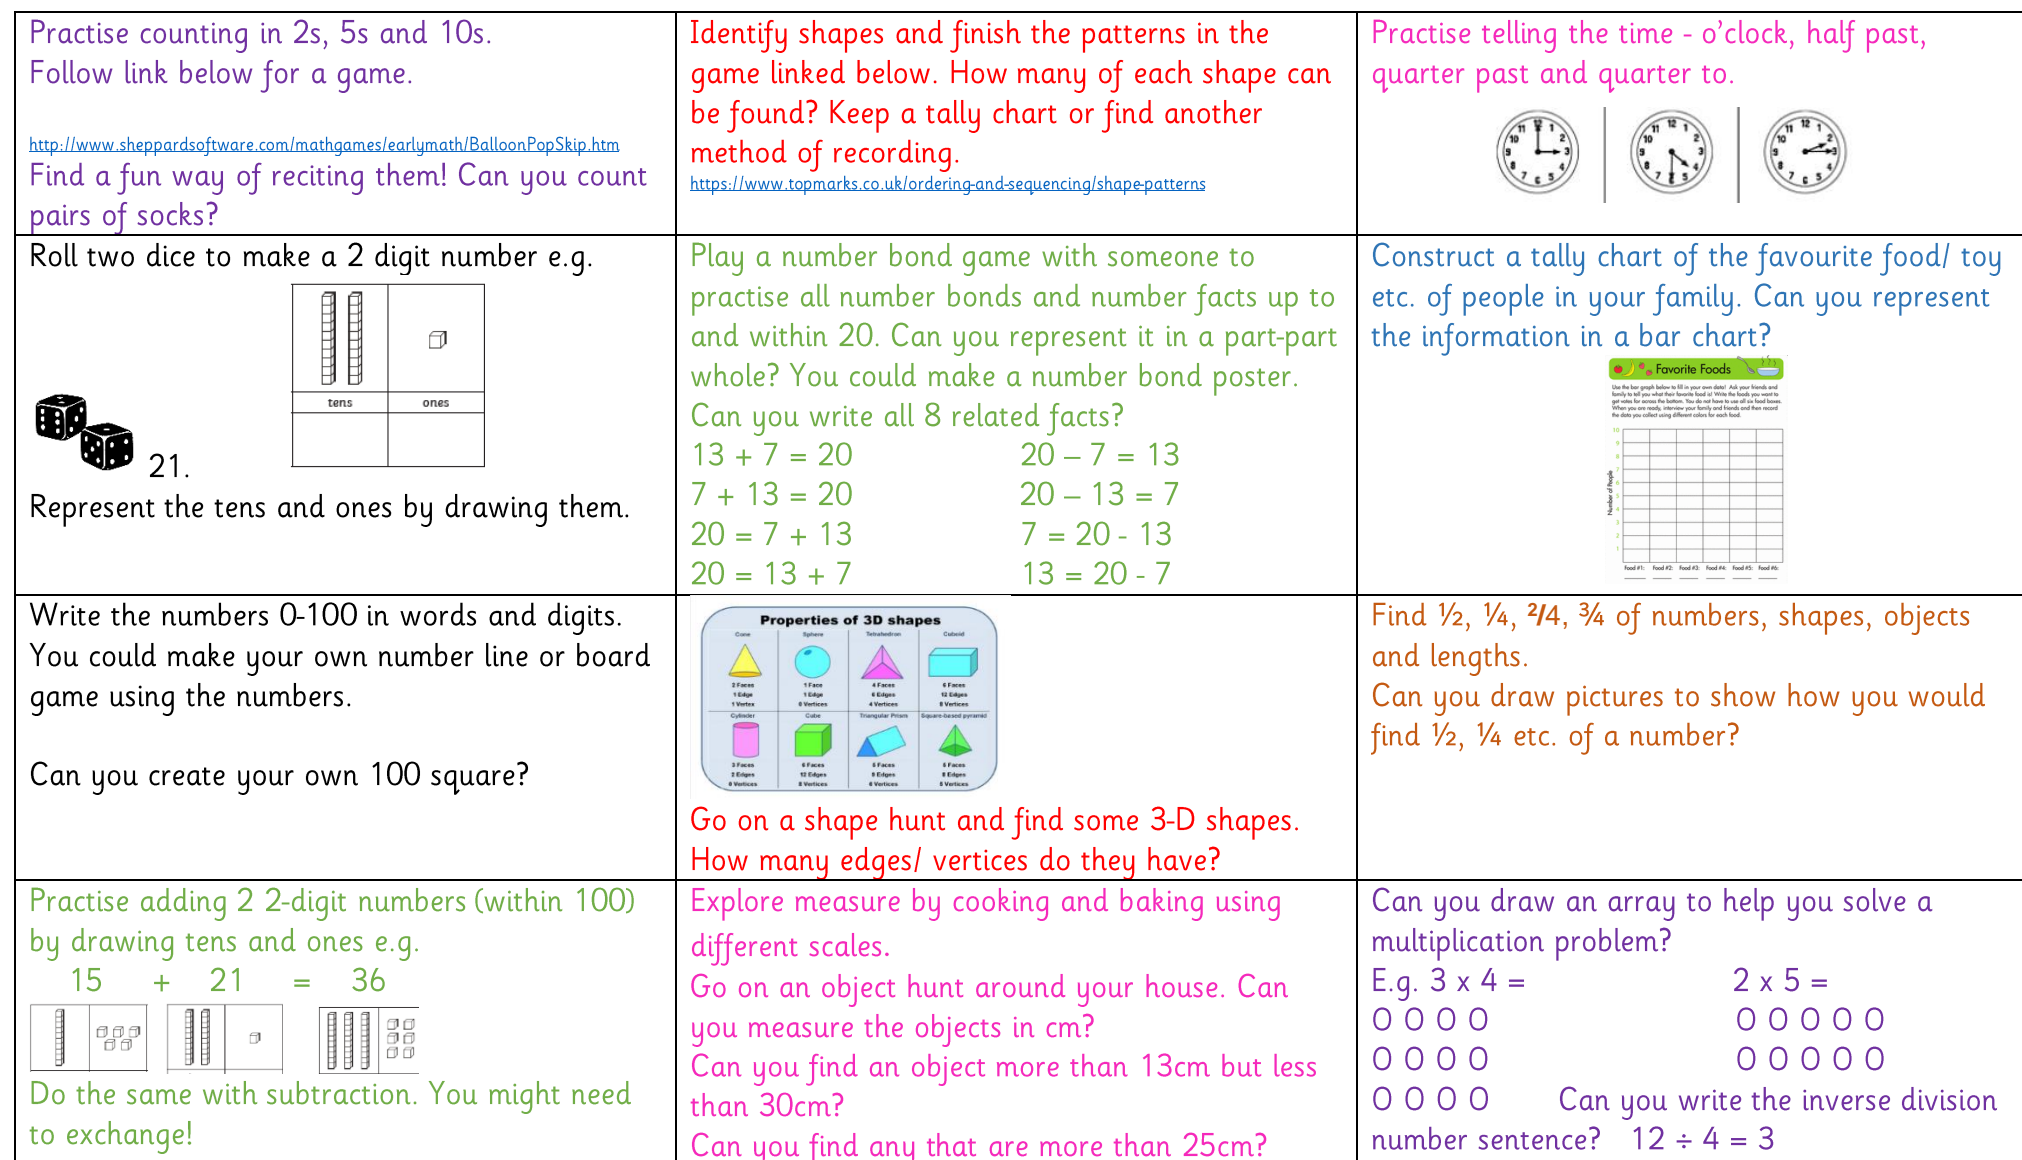 Practise counting in 2s, 5s and 10s.
Follow link below for a game.
http://www.sheppardsoftware.com/mathgames/earlymath/BalloonPopSkip.htm
Find a fun way of reciting them! Can you count
pairs of socks?
Identify shapes and finish the patterns in the
game linked below. How many of each shape can
be found? Keep a tally chart or find another
method of recording.
https://www.topmarks.co.uk/ordering-and-sequencing/shape-patterns
Practise telling the time - o’clock, half past,
quarter past and quarter to.
Roll two dice to make a 2 digit number e.g.
tens ones
21.
Represent the tens and ones by drawing them.
Play a number bond game with someone to
practise all number bonds and number facts up to
and within 20. Can you represent it in a part-part
whole? You could make a number bond poster.
Can you write all 8 related facts?
13 + 7 = 20 20 – 7 = 13
7 + 13 = 20 20 – 13 = 7
20 = 7 + 13 7 = 20 - 13
20 = 13 + 7 13 = 20 - 7
Construct a tally chart of the favourite food/ toy
etc. of people in your family. Can you represent
the information in a bar chart?
Favorite Foods
Use the bar graph below to fill in your own data! Ask your friends and
family to tell you what their favorite food is! Write the foods you want to
get votes for across the bottom. You do not have to use all six food boxes.
When you are ready, interview your family and friends and then record
the data you collect using different colors for each food.
Number of People
Food #1: Food #2: Food #3: Food #4: Food #5: Food #6:
Write the numbers 0-100 in words and digits.
You could make your own number line or board
game using the numbers.
Can you create your own 100 square?
Properties of 3D shapes
Cone Sphere Tetrahedron Cuboid
2 Faces 1 Face 4 Faces 6 Faces
1 Edge 1 Edge 6 Edges 12 Edges
1 Vertex 0 Vertices 4 Vertices 8 Vertices
Cylinder Cube Triangular Prism Square-based pyramid
3 Faces 6 Faces 5 Faces 5 Faces
2 Edges 12 Edges Edges 8 Edges
0 Vertices 8 Vertices 6 Vertices 5 Vertices
Go on a shape hunt and find some 3-D shapes.
How many edges/ vertices do they have?
Find ½, ¼, 2/4, ¾ of numbers, shapes, objects
and lengths.
Can you draw pictures to show how you would
find ½, ¼ etc. of a number?
Practise adding 2 2-digit numbers (within 100)
by drawing tens and ones e.g.
15 + 21 = 36
Do the same with subtraction. You might need
to exchange!
Explore measure by cooking and baking using
different scales.
Go on an object hunt around your house. Can
you measure the objects in cm?
Can you find an object more than 13cm but less
than 30cm?
Can you find any that are more than 25cm?
Can you draw an array to help you solve a
multiplication problem?
E.g. 3 x 4 = 2 x 5 =
O O O O O O O O O
O O O O O O O O O
O O O O Can you write the inverse division
number sentence? 12 ÷ 4 = 3